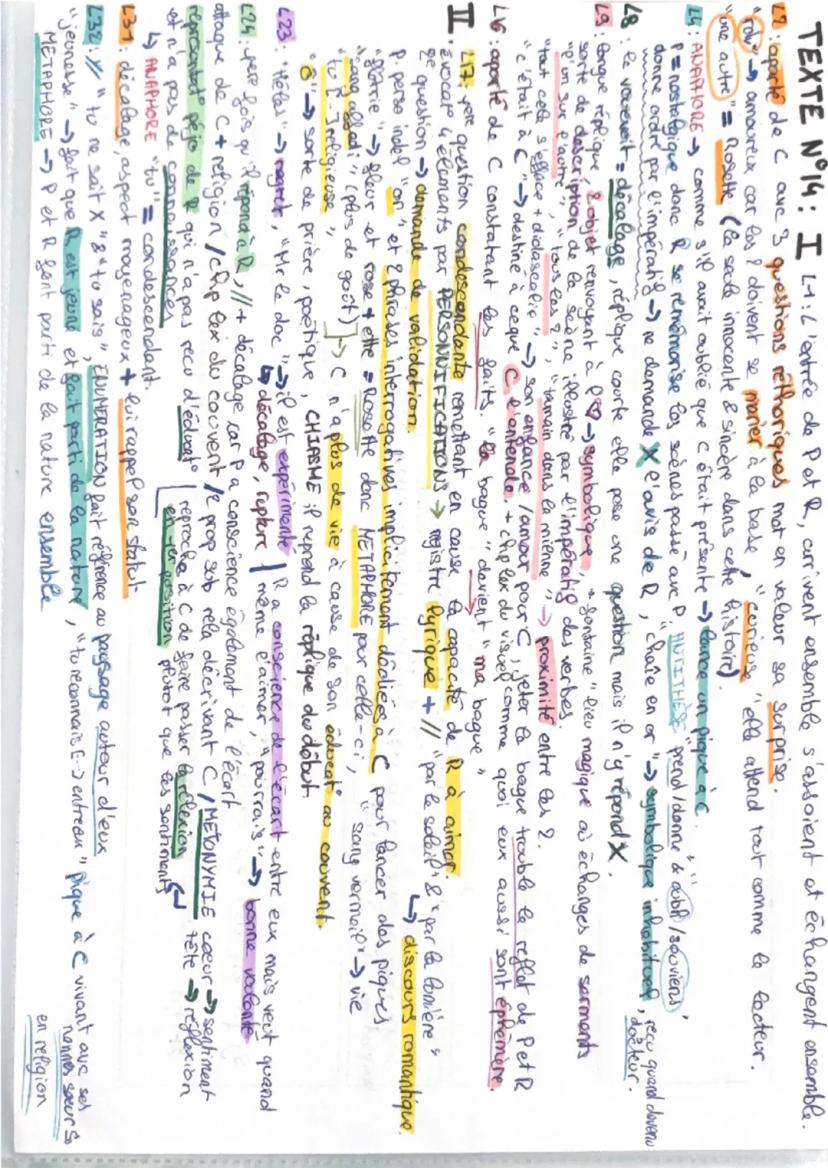 TEXTE N°14 : I L-1 : L'entrée de P et R, arrivent ensemble s'assoient et échangent ensemble.
L2 : aparté de C avec 3 questions réthoriques met en valeur sa surprise.
"roi" → amoureux car les 2 doivent se marier à la base, "curieuse" elle attend tout comme le lecteur.
"une autre" = Rosette (la seule innocente & sincère dans cette histoire).
L4 : ANAPHORE → comme s'il avait oublié que C était présente → lance un pique à C.
P = nostalgique donc R se remémorise les scènes passé avec P ANTITHÈSE prend/donne & oubli/souviens,
donne ordre par l'impératif → ne demande X l'avis de R, "chaîne en or" → symbolique inhabituel, reçu quand devenu docteur.
L8 : le vouvoiement = décalage, réplique courte elle pose une question mais il n'y répond X.
L9 : longue réplique, objet renvoyant à P ♡ → symbolique, "fontaine" lieu magique où échanges de serments
sorte de description de la scène illustré par l'impératif des verbes.
"l'on sur l'autre", "tous les 2", "ta main dans la mienne" → proximité entre les 2.
"tout cela s'efface + didascalie" → son enfance/amour pour C, jeter la bague trouble le reflet de P et R
"c'était à C" → destiné à ce que C l'entende + chp lex du visuel comme quoi eux aussi sont éphémère.
L16 : aparté de C constatant les faits, "la bague" devient "ma bague"
II L17 : 1ère question condescendante remettant en cause la capacité de R à aimer.
évocat° 4 éléments par PERSONNIFICATIONS → registre lyrique + // "par le soleil" & "par la lumière"
question → demande de validation. ↳ discours romantique.
p. perso indéf "on" et 2 phrases interrogatives implicitement dédiées à C pour lancer des piques
"flétrie" → fleur et rose + ette = Rosette donc METAPHORE pour celle-ci, "sang vermeil" → vie
"sang affadi" (plus de goût) ] → C n'a plus de vie à cause de son éducat° au couvent.
"tu [...] religieuse"
"ô" → sorte de prière, poétique, CHIASME il reprend la réplique du début.
L23 : "Hélas" → regret, "Mr le doc" → il est expérimenté / R a conscience de l'écart entre eux mais veut quand même l'aimer, "pourrais" → bonne volonté
↳ décalage, rupture
L24 : 1ère fois qu'il répond à R, // + décalage car P a conscience également de l'écart
attaque de C + religion / chp lex du couvent / 2 prop sub rela décrivant C / METONYMIE cœur → sentiment tête → réflexion
représentat° péjo de R qui n'a pas reçu d'éducat° reproche à C de faire passer la réflexion
et n'a pas de connaissances en 1er position plutôt que les sentiments
↳ ANAPHORE "tu" = condescendant.
L31 : décalage, aspect moyenageux + lui rappel son statut.
L32 : // "tu ne sait X" & "tu sais", ENUMERATION fait référence au paysage autour d'eux
"jeunesse" → fait que R est jeune et fait parti de la nature, "tu reconnais [...] entre eux" pique à C vivant avec ses nonnes sœurs en religion
METAPHORE → P et R font parti de la nature ensemble